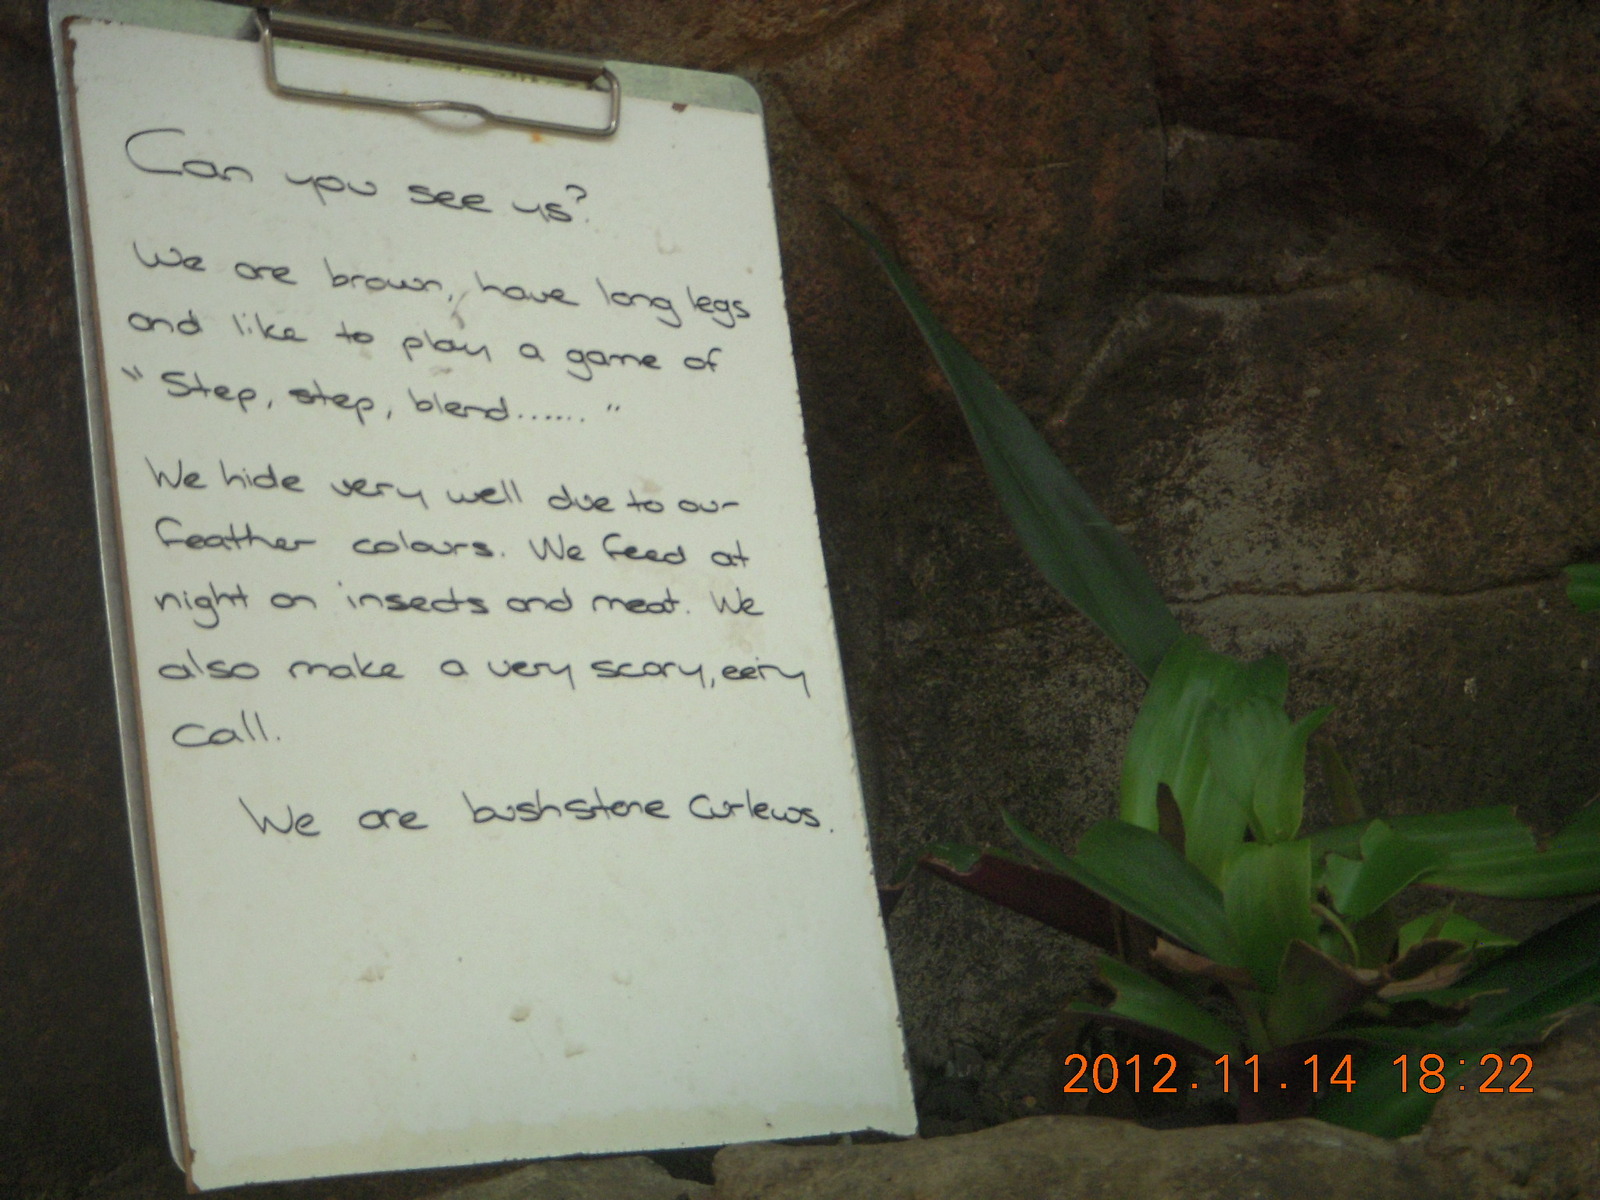 Can you see us?
We are brown, have long legs
and like to play a game of
"Step, step, blend...... "
We hide very well due to our
feather colours. We feed at
night on insects and meat. We
also make a very scary, eeiry
call.
We are bushstone curlews.
2012.11.14 18:22